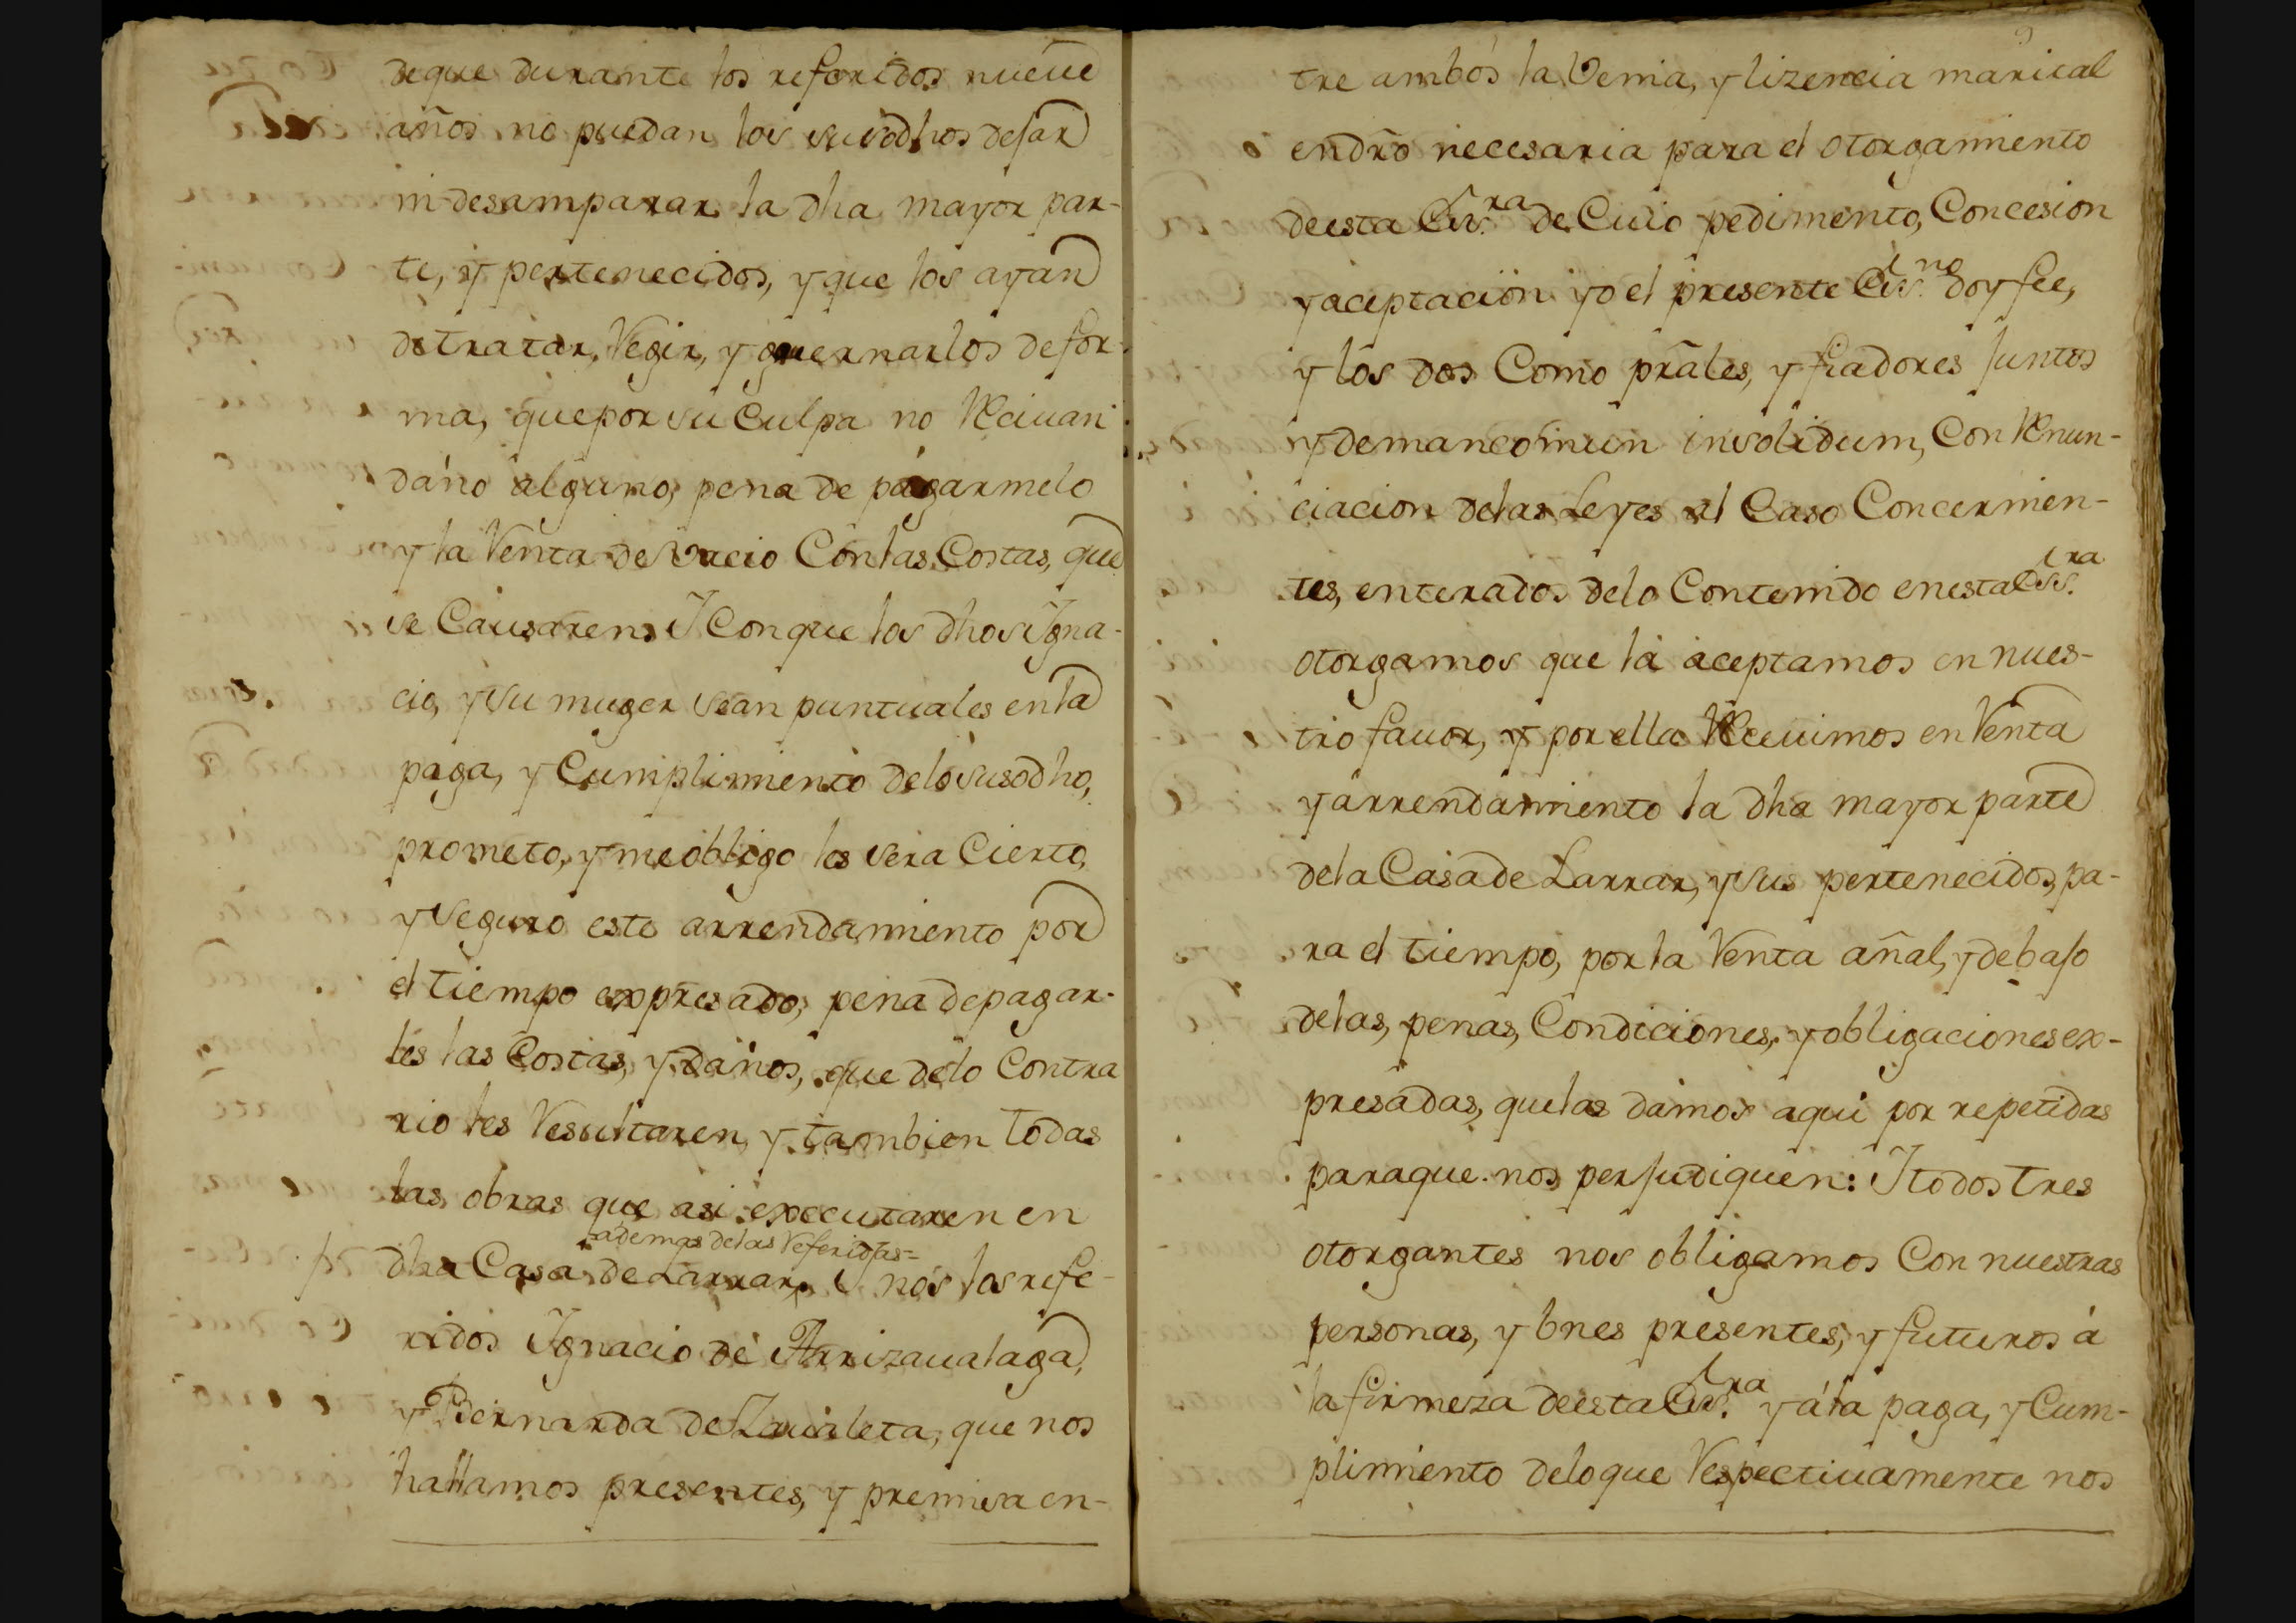 de que durante los referidos nueue
años no puedan los susodhos dejar
ni desamparar la dha mayor par-
te, y pertenecidos, y que los ayan
de tratar, Regir, y guernarlos de for-
ma, que por su Culpa no Reciuan
daño alguno, pena de pagarmelo
y la Renta de Vacio Con las Costas, que
se Causaren. Y Con que los dhos Igna-
cio, y su muger sean puntuales en la
paga, y Cumplimiento delo susodho,
prometo, y me obligo les sera Cierto,
y Seguro este arrendamiento por
el tiempo expresado, pena de pagar-
les las Costas, y daños, que delo Contra
rio les Resultaren, y tambien todas
las obras que asi executaren en
ademas delas Referidas=
dha Casa de Larrar, Y nos los refe-
ridos Ignacio de Arrizaualaga,
y Bernarda de Zaualeta, que nos
hallamos presentes, y premisa en-
tre ambos la Venia, y lizencia marical
en dro necesaria para el otorgamiento
de esta Essra de Cuio pedimento, Concesion
y aceptacion yo el presente Essno doy fee,
y los dos Como prales, y fiadores Juntos
y de mancomun insolidum, Con Renun-
ciacion delas Leyes al Caso Concernien-
tes, enterados delo Contenido en esta Essra
otorgamos que la aceptamos en nues-
tro fauor, y por ella Recuimos en Renta
y arrendamiento la dha mayor parte
dela Casa de Larrar, y sus pertenecidos, pa-
ra el tiempo, por la Renta añal, y debajo
delas, penas, Condiciones, y obligaciones ex-
presadas, que las damos aqui por repetidas
para que nos perjudiquen: Y todos tres
otorgantes nos obligamos Con nuestras
personas, y bnes presentes, y futuros á
la firmeza de esta Essra y á la paga, y Cum-
plimiento delo que Respectiuamente nos